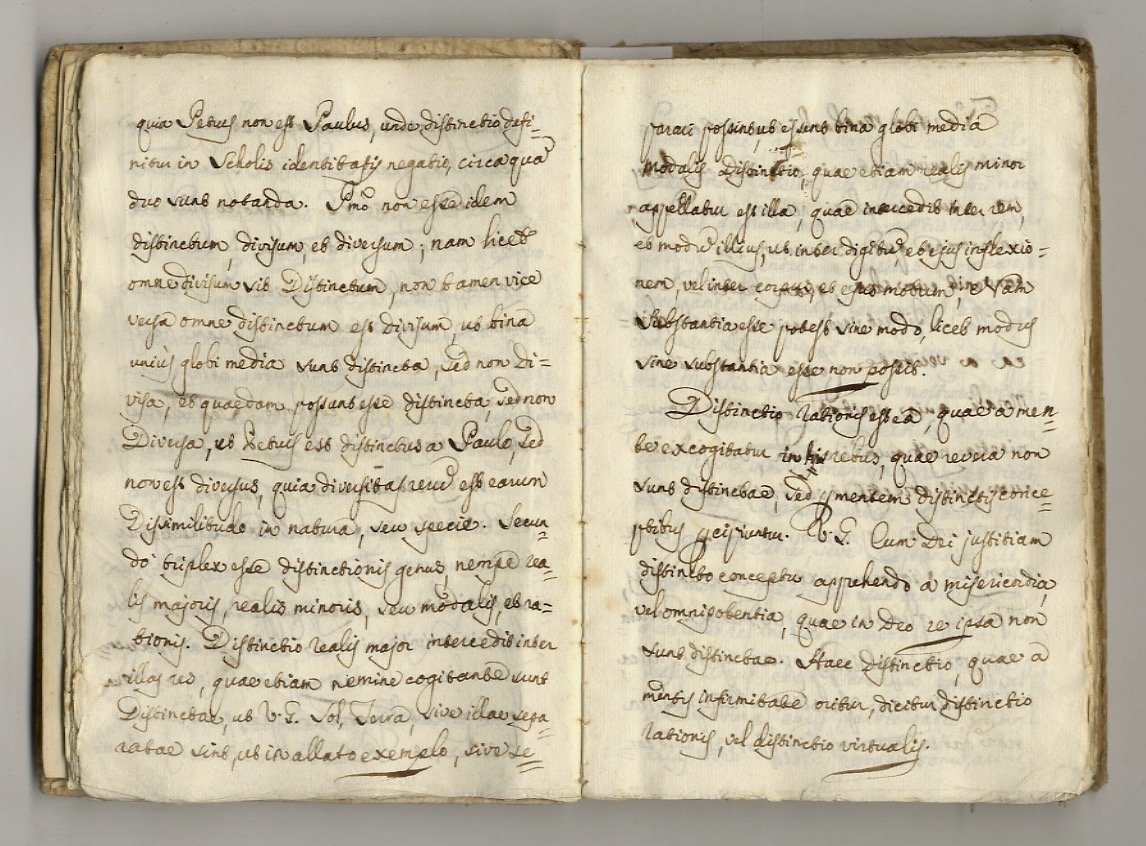 quia Petrus non est Paulus, unde distinctio defi=
nitur in Scholis identitatis negatio, circa quā
duo sunt notanda. Pmō non esse idem
distinctum, divisum, et diversum; nam licet
omne divisum sit Distinctum, non tamen vice
versa omne distinctum est divisum, ut bina
unius globi media sunt distincta, sed non di=
visa, et quaedam possunt esse distincta, sed non
Diversa, ut Petrus est distinctus a Paulo, sed
non est diversus, quia diversitas rerū est earum
Dissimilitudo in natura, seu specie. Secun=
dō triplex esse distinctionis genus, nempe rea=
lis majoris, realis minoris, seu modalis, et ra=
tionis. Distinctio realis major intercedit inter
illas res, quae etiam nemine cogitante sunt
Distinctae, ut V. G. Sol, Terra, sive illae sepa=
ratae sint, ut in allato exemplo, sive se=
parari possint, ut essent bina globi media
Modalis Distinctio, quae etiam realis minor
appellatur est illa, quae intercedit inter rem,
et modū illius, ut inter digitū et ejus inflexio=
nem, vel inter corpus, et ejus motum, Nam
substantia esse potest sine modo, licet modus
sine substantia esse non possit.
Distinctio rationis est ea, quae a men=
te excogitatur in his rebus, quae revera non
sunt distinctae, sed mentem distinctis conce=
ptibus . V. G. Cum Dei justitiam
distincto conceptu apprehendo a misericordia,
vel omnipotentia, quae in Deo re ipsa non
sunt distinctae. Haec Distinctio, quae a
mentis infirmitate oritur, dicitur distinctio
rationis, vel distinctio virtualis.